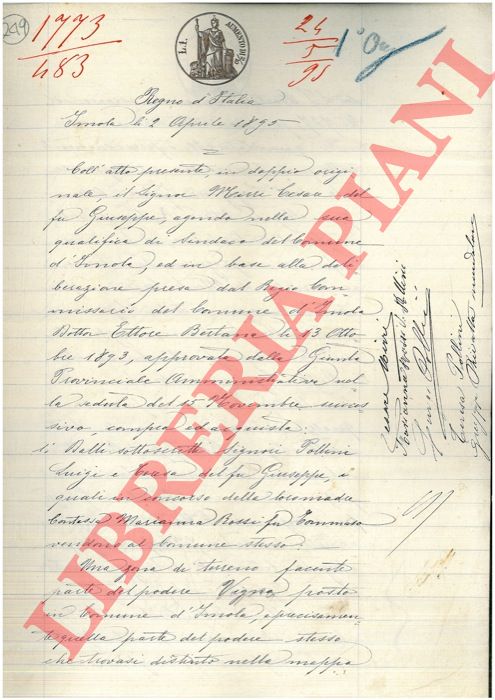 249
1773
483
L.I.
AUMENTO DI 2/10
24
5
95
Regno d'Italia
Imola li 2 Aprile 1895
Coll'atto presente in doppio origi
nale, il Signor Mirri Cesare del
fu Giuseppe, agendo nella sua
qualifica di Sindaco del Comune
d'Imola, ed in base alla deli
berazione presa dal Regio Com
missario del Comune d'Imola
Dottor Ettore Bertana li 3 Otto
bre 1893, approvata dalla Giunta
Provinciale Amministrativa nel
la seduta del 15 Novembre succes
sivo, compra ed acquista:
Dalli sottoscritti Signori Pollini
Luigi e Teresa del fu Giuseppe, i
quali in concorso della loro madre
Contessa Marianna Rossi fu Tommaso
vendono al Comune stesso:
Una zona di terreno facente
parte del podere Vigna posto
in Comune d'Imola e precisamen
te quella parte del podere stesso
che trovasi distinto nella mappa
Cesare Mirri
Marianna Rossi V. Pollini
Pollini
Teresa Pollini
LIBRERIA PIANI